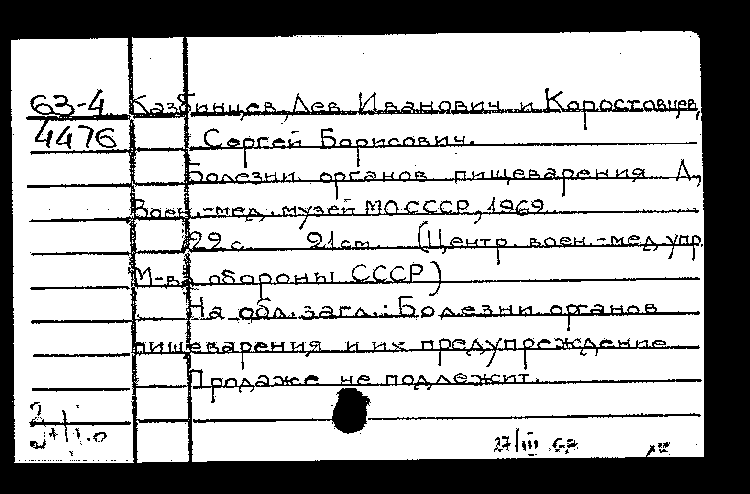 63-4 Казбинцев, Лев Иванович и Коростовцев,
4476 Сергей Борисович.
Болезни органов пищеварения Л.,
Воен.-мед. музей МО СССР, 1969
22 с. 21 см. (Центр. воен.-мед. упр.
М-ва обороны СССР)
На обл. загл.: Болезни органов
пищеварения и их предупреждение
Продаже не подлежит.
27/III